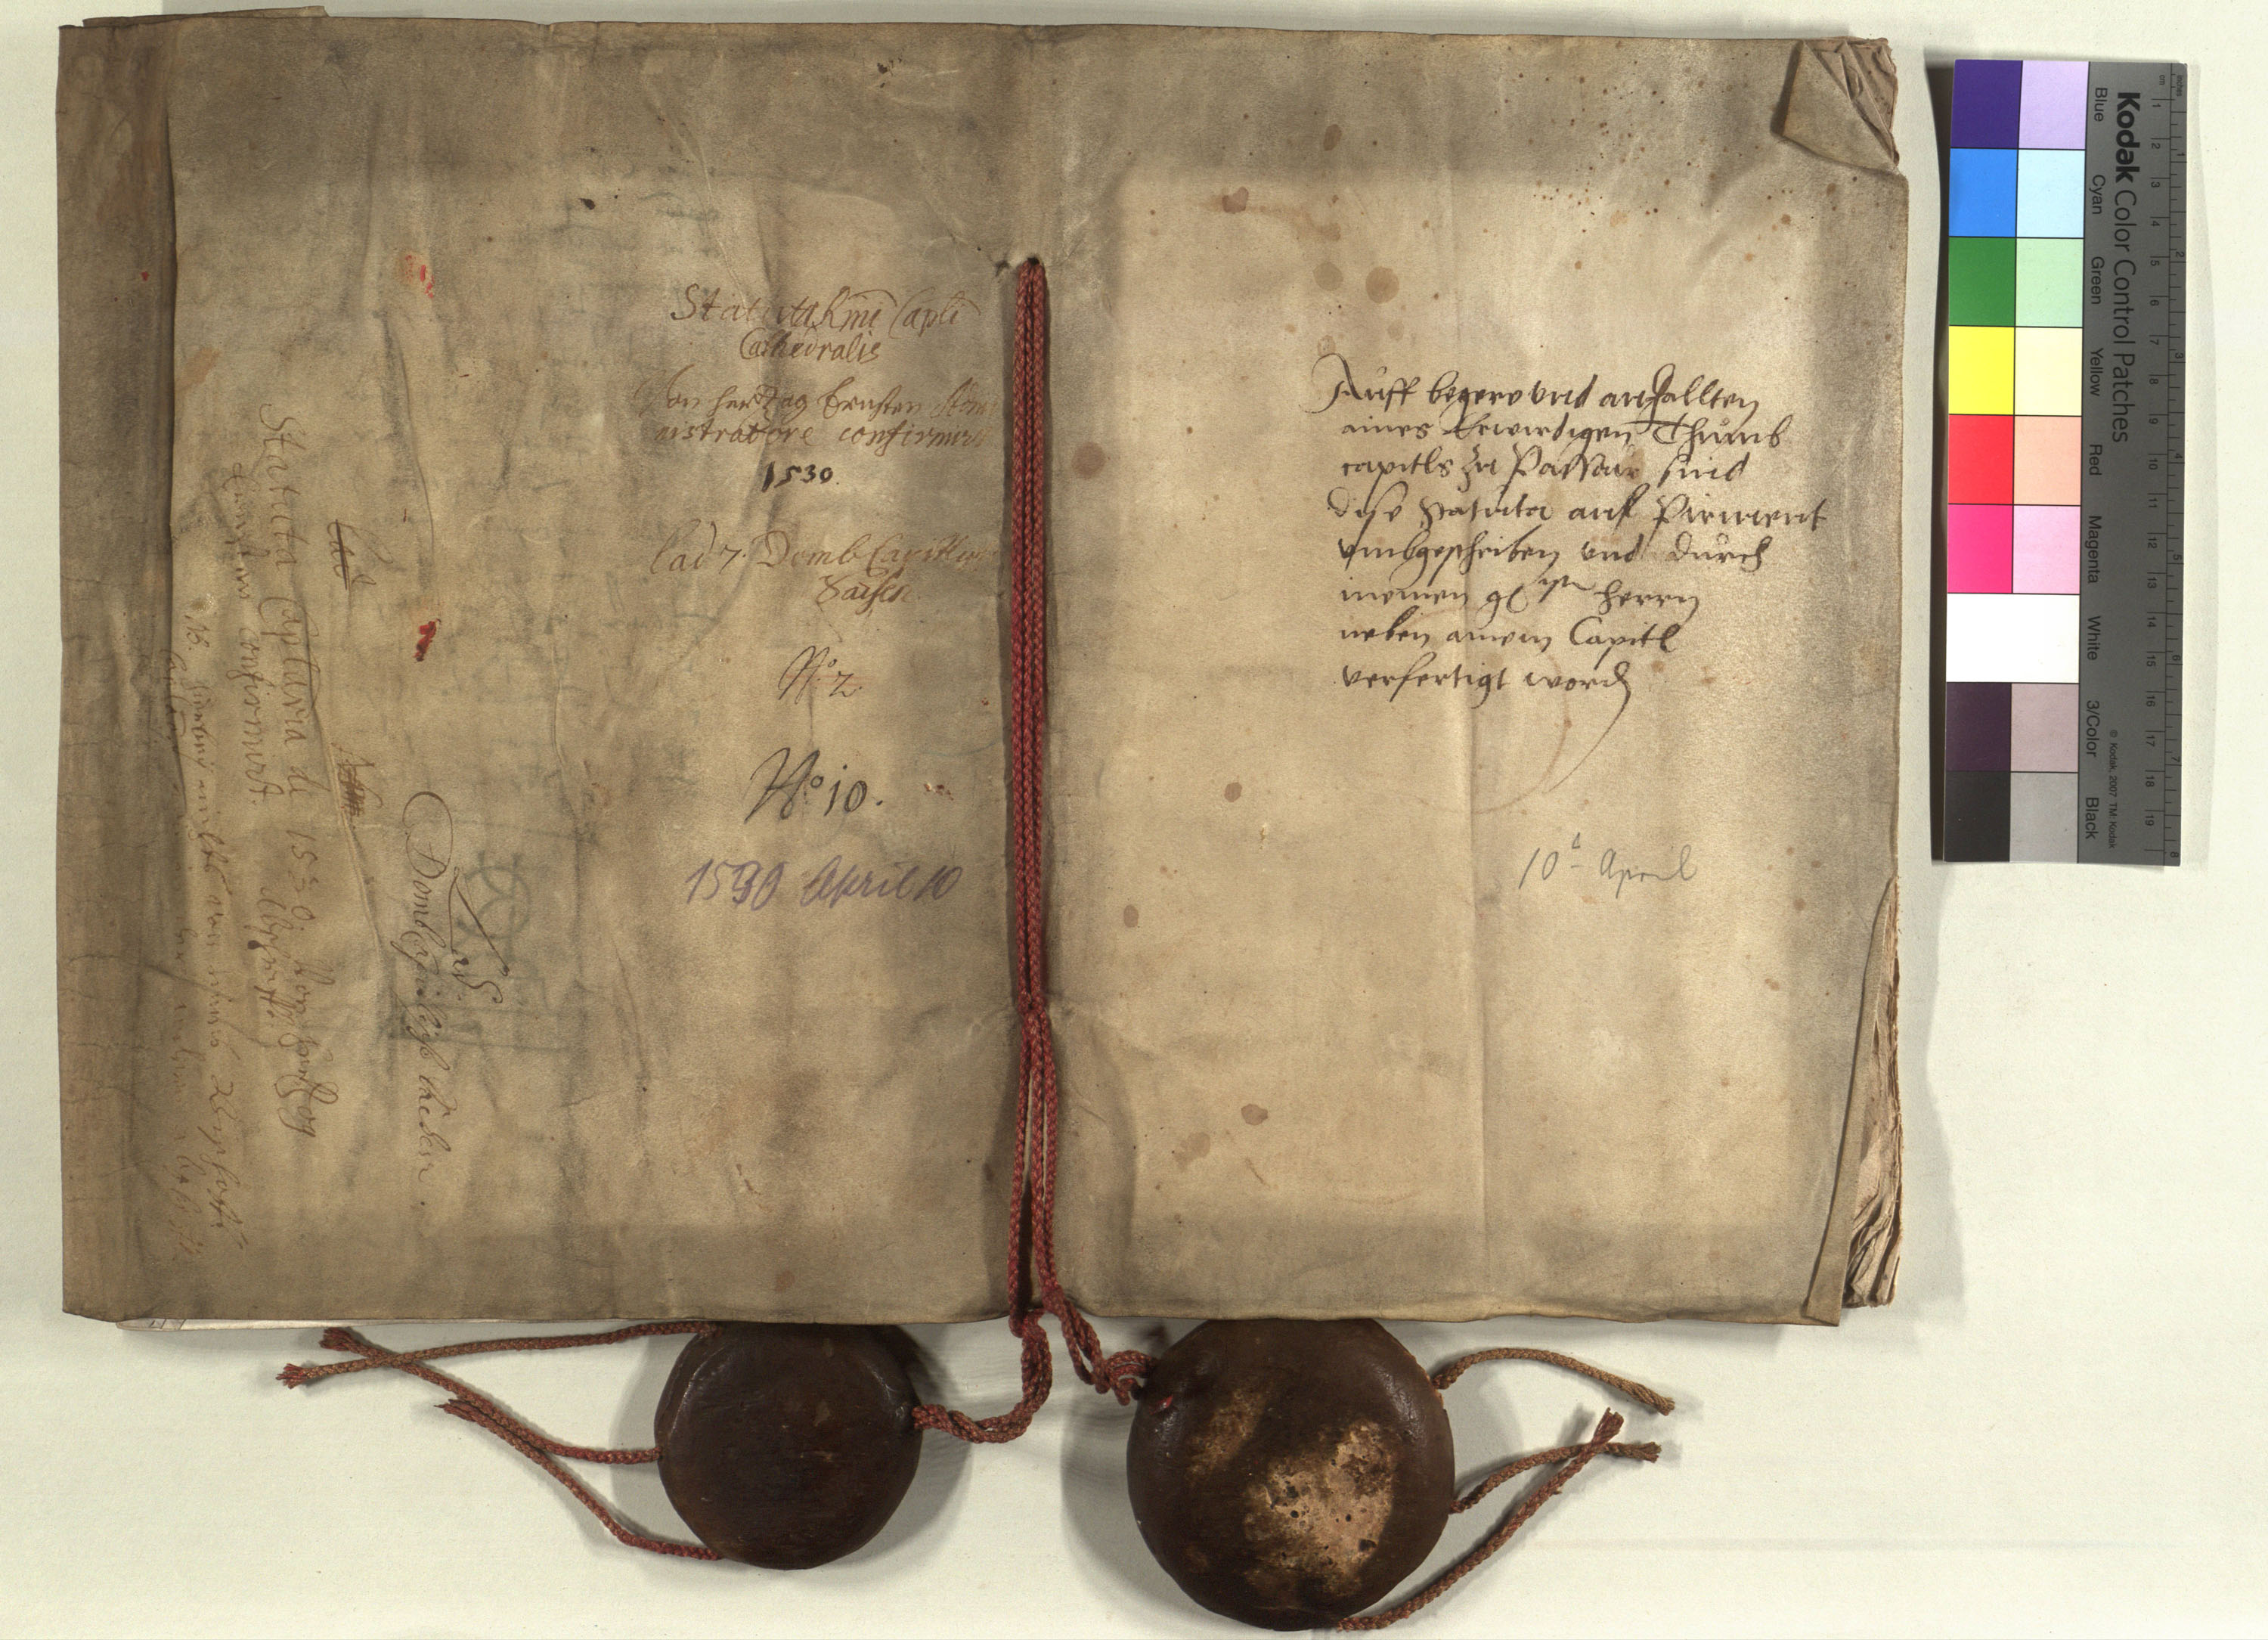 Statuta Rmi Capli
Cathedralis
Von hertzog Ernsten Admi
nistratore confirmirt
1530.
Lad 7. Domb Capittlische
Sachen
No. 2.
No. 10.
1530 April 10
Statuta Capitularia de 1530 Von herzog
Ernsten confirmirt. Abschrifft
Lad
NB.
Lad
Domb Capitlische Laden.
Auff beger vnd anhallten
aines Erwirdigen Thumb
capitls zu Passaw sind
dise statuta auf Pirment
vmbgeschriben vnd durch
meinen herrn
neben ainem Capitl
verfertigt word
10t April
Kodak Color Control Patches
Blue Cyan Green Yellow Red Magenta White 3/Color Black
© Kodak, 2007 TM: Kodak
inches 1 2 3 4 5 6 7 8
cm 1 2 3 4 5 6 7 8 9 10 11 12 13 14 15 16 17 18 19